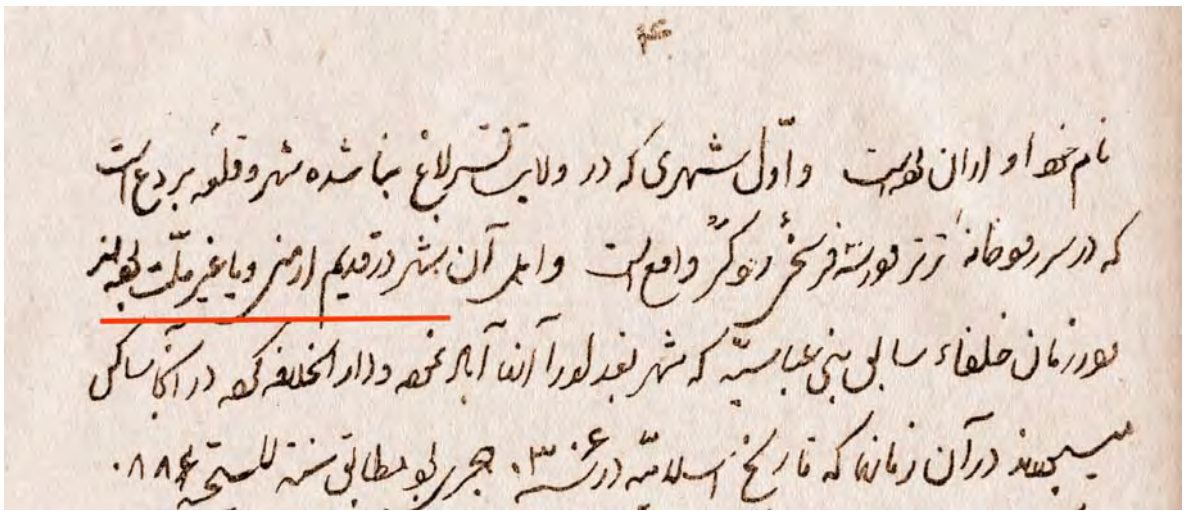 ۴
نام خود او اران بوده است و اوّل شهری که در ولایت قراباغ بنا شده شهر و قلعه بردع است
که در سر رودخانهٔ ترتر و در سه فرسخیٔ رود کُر واقع است و اهل آن شهر در قدیم ارمنی و یا غیر ملّت بودند
و در زمان خلفاء سابق بنی عباسیّه که شهر بغداد را آنها آباد نموده و دارالخلافه کرده در آنجا ساکن
میبودند در آن زمانها که تاریخ اسلامیّه در سنه هجری بود مطابق سنه